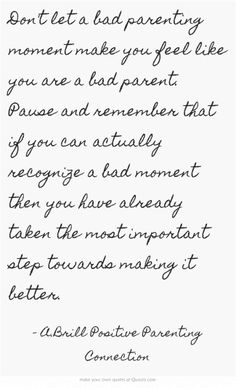 Don't let a bad parenting
moment make you feel like
you are a bad parent.
Pause and remember that
if you can actually
recognize a bad moment
then you have already
taken the most important
step towards making it
better.
- A.Brill Positive Parenting
Connection
make your own quotes at Quozio.com